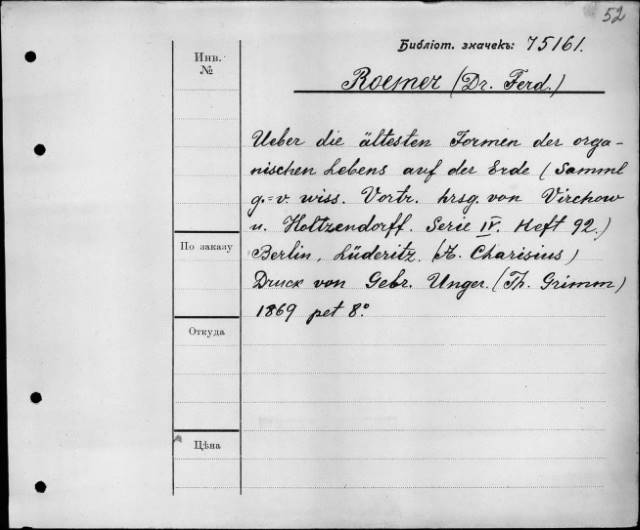 52
Библіот. значекъ: 75161.
Инв.
№
Roemer (Dr. Ferd.)
Ueber die ältesten Formen der orga-
nischen Lebens auf der Erde (Samml
g. v. wiss. Vortr. hrsg. von Virchow
u. Holtzendorff. Serie IV. Heft 92.)
По заказу
Berlin, Lüderitz. (A. Charisius)
Druck von Gebr. Unger. (Th. Grimm)
1869 pet 8º.
Откуда
Цѣна